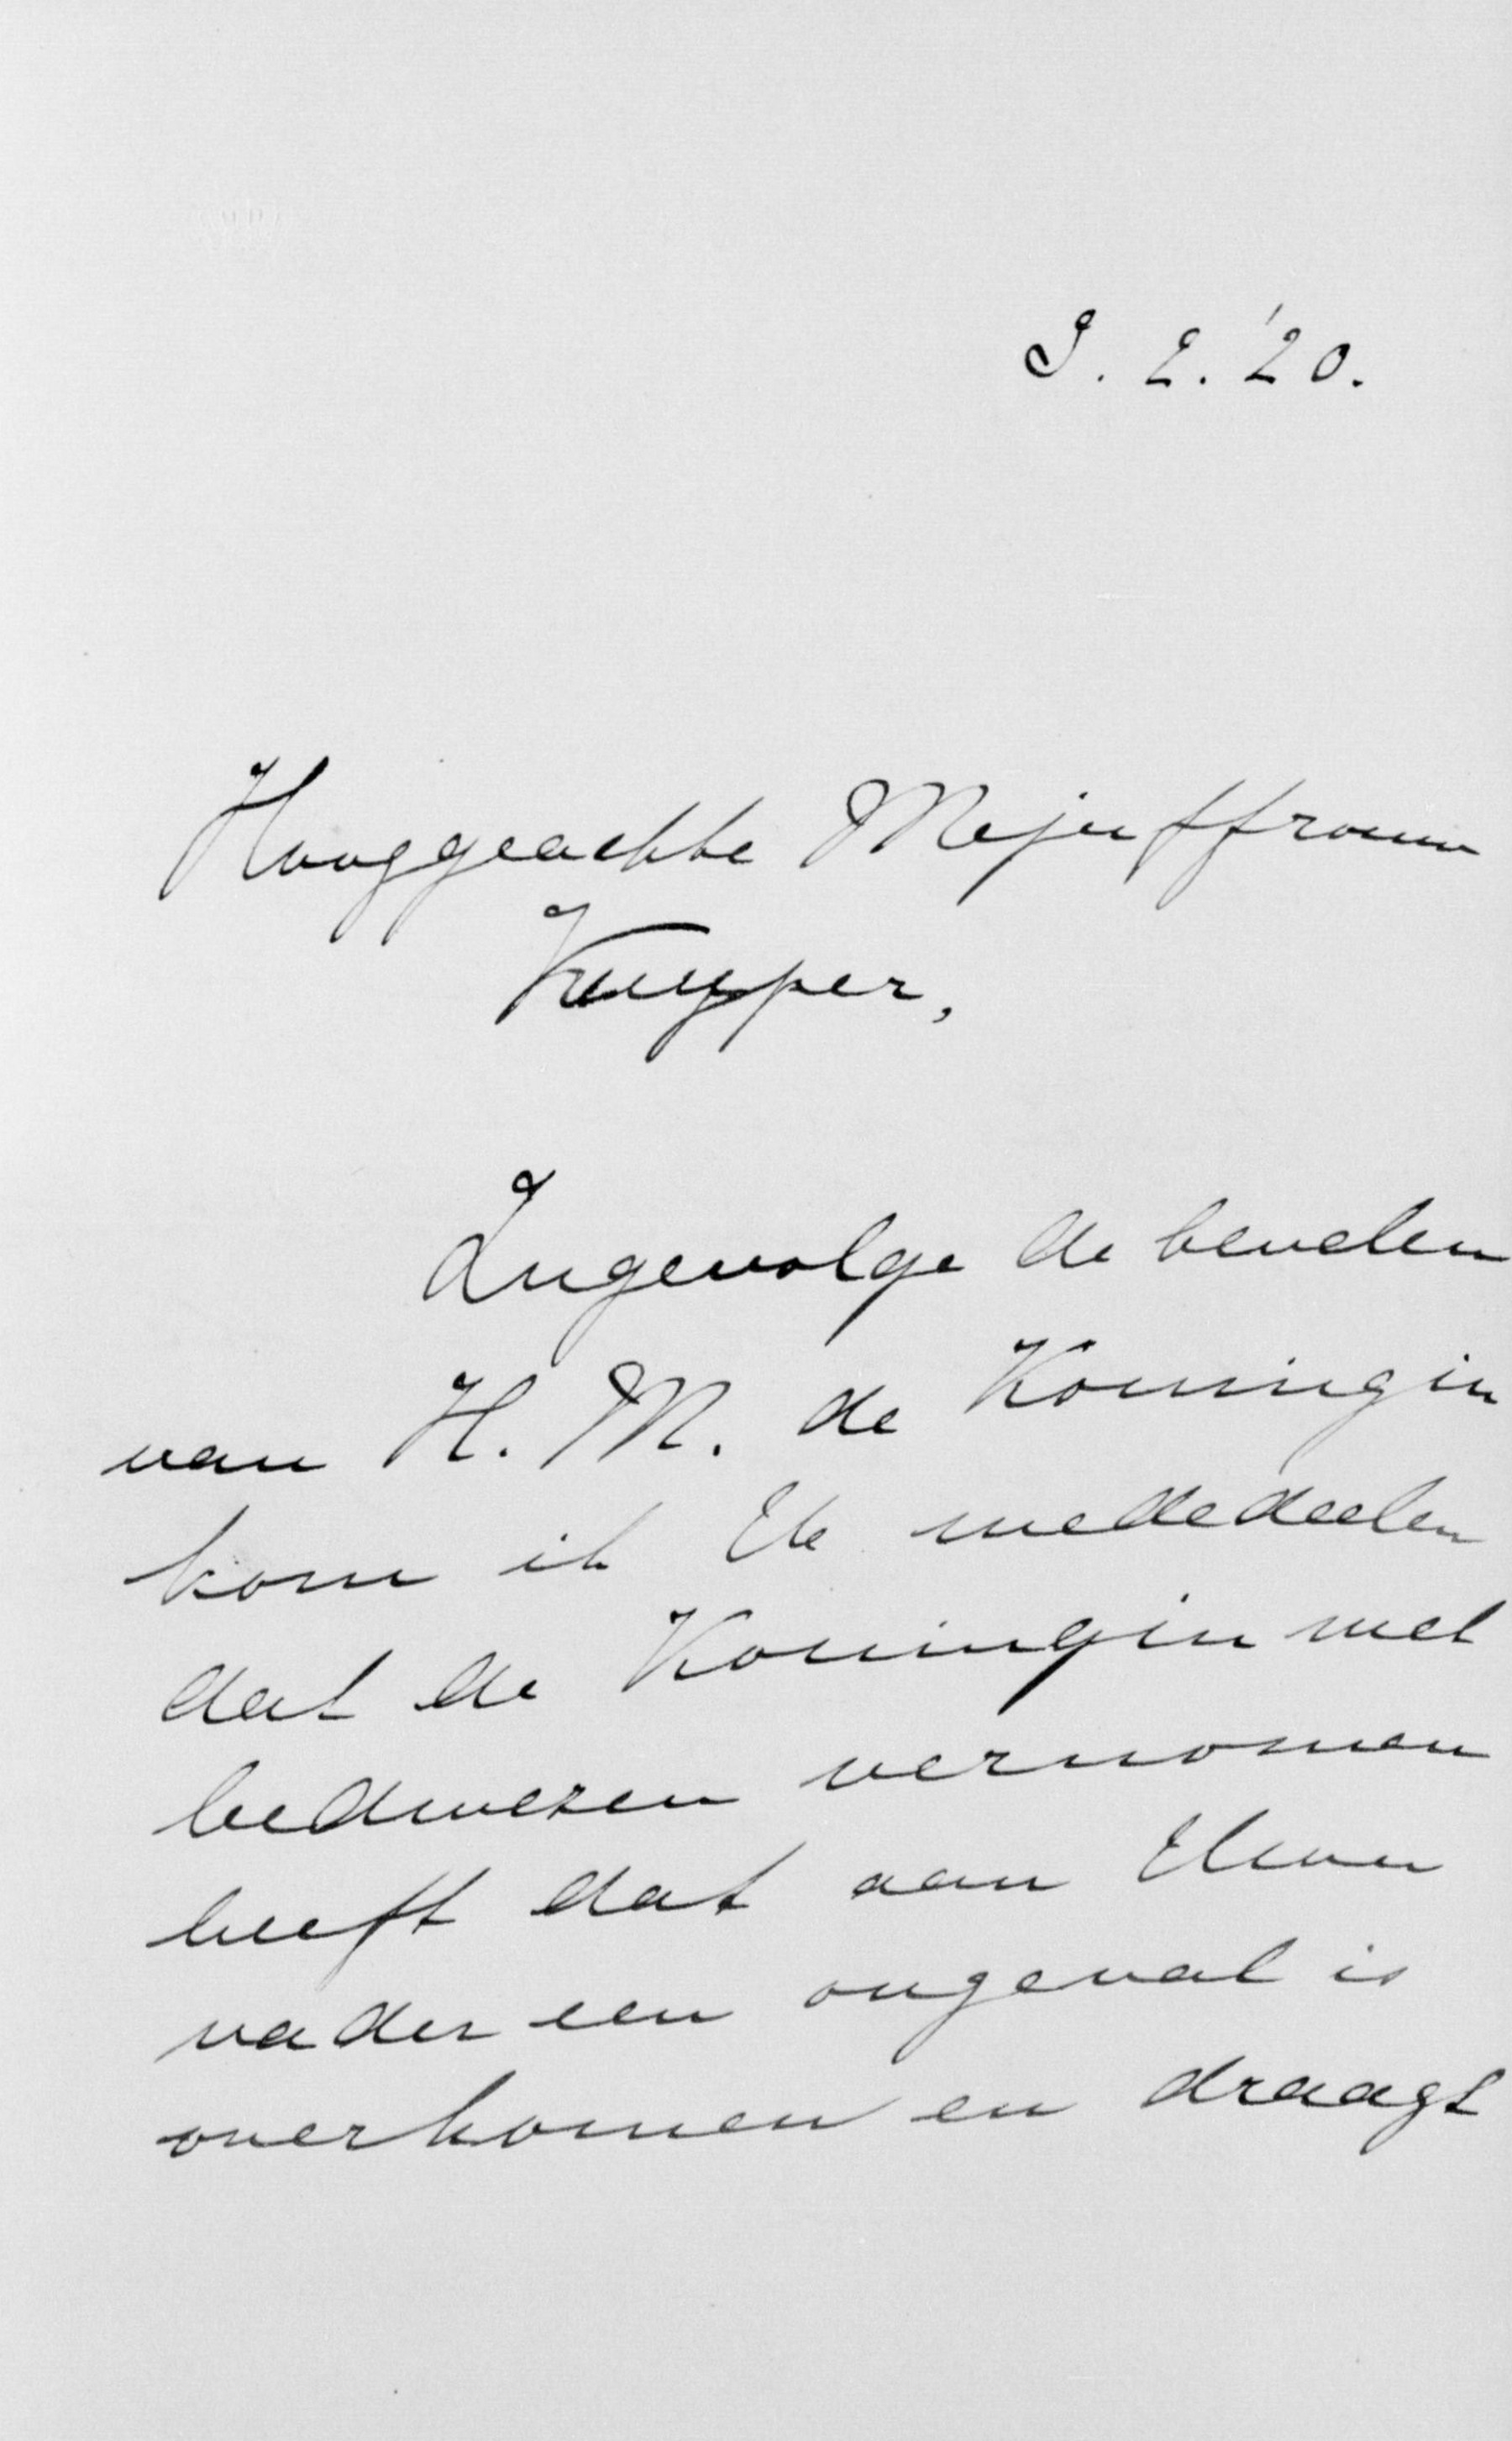 9. 2. '20.
Hooggeachte Mejuffrouw
Kuyper,
Ingevolge de bevelen
van H. M. de Koningin
kom ik UE mededeelen
dat de Koningin met
leedwezen vernomen
heeft dat aan Uwen
vader een ongeval is
overkomen en draagt